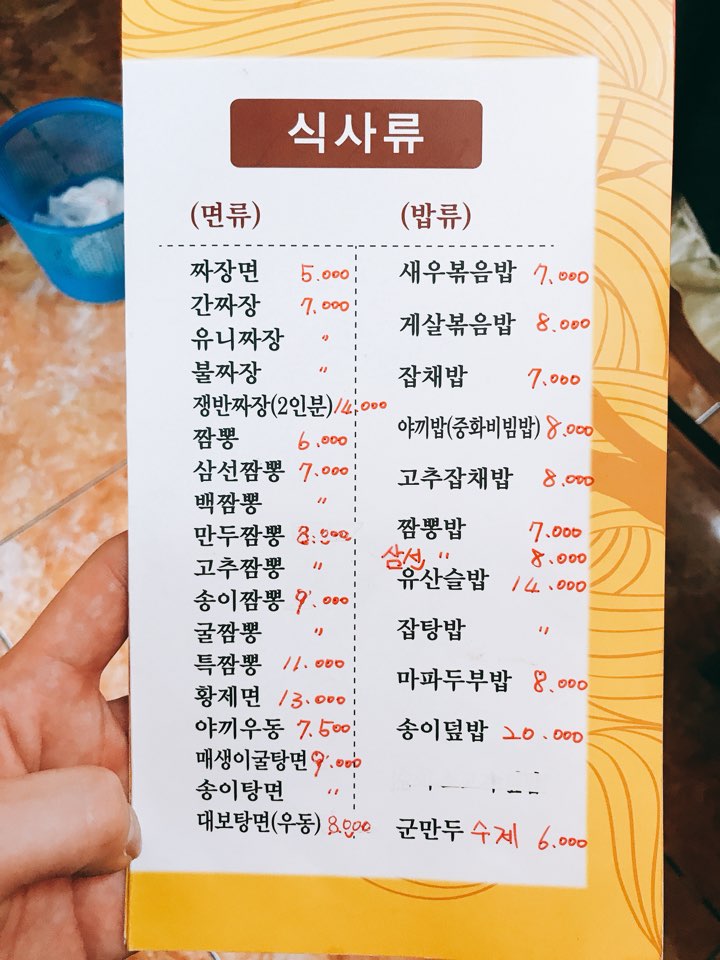 식사류
(면류)
짜장면 5.000
간짜장 7.000
유니짜장 〃
불짜장 〃
쟁반짜장(2인분) 14.000
짬뽕 6.000
삼선짬뽕 7.000
백짬뽕 〃
만두짬뽕 8.000
고추짬뽕 〃
송이짬뽕 9.000
굴짬뽕 〃
특짬뽕 11.000
황제면 13.000
야끼우동 7.500
매생이굴탕면 9.000
송이탕면 〃
대보탕면(우동) 8.000
(밥류)
새우볶음밥 7.000
게살볶음밥 8.000
잡채밥 7.000
야끼밥(중화비빔밥) 8.000
고추잡채밥 8.000
짬뽕밥 7.000
삼선 〃 8.000
유산슬밥 14.000
잡탕밥 〃
마파두부밥 8.000
송이덮밥 20.000
군만두 수제 6.000